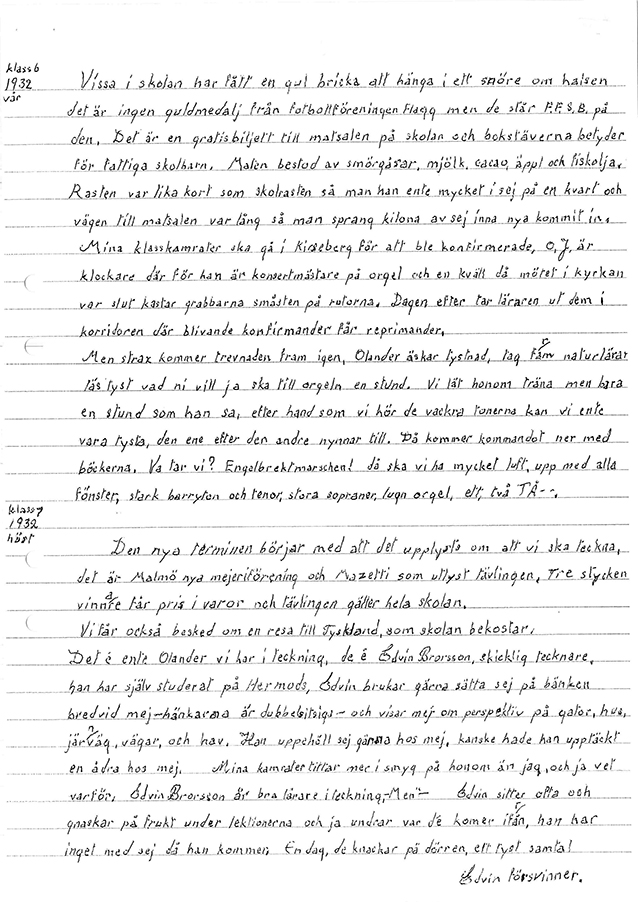 klass 6
1932
vår
Vissa i skolan har fått en gul bricka att hänga i ett snöre om halsen
det är ingen guldmedalj från fotbollföreningen Flagg men de står F.F.S.B. på
den. Det är en gratisbiljett till matsalen på skolan och bokstäverna betyder
för fattiga skolbarn. Maten bestod av smörgåsar, mjölk, cacao, äppl och fiskolja.
Rasten var lika kort som skolrasten så man han ente mycket i sej på en kvart och
vägen till matsalen var lång så man sprang kilona av sej inna nya kommit in.
Mina klasskamrater ska gå i Kirseberg för att ble konfirmerade, O,J, är
klockare där för han är konsertmästare på orgel och en kväll då mötet i kyrkan
var slut kastar grabbarna småsten på rutorna. Dagen efter tar läraren ut dem i
korridoren där blivande konfirmander får reprimander.
Men strax kommer trevnaden fram igen, Olander äskar tystnad, tag fram naturlärar
läs tyst vad ni vill ja ska till orgeln en stund. Vi låt honom träna men bara
en stund som han sa, efter hand som vi hör de vackra tonerna kan vi ente
vara tysta, den ene efter den andre nynnar till. Då kommer kommandot ner med
böckerna. Va tar vi? Engelbrektmarschen! då ska vi ha mycket luft, upp med alla
fönster, stark barryton och tenor, stora sopraner, lugn orgel, ett, två TÅ--.
klass 7
1932
höst
Den nya terminen börjar med att det upplysts om att vi ska teckna,
det är Malmö nya mejeriförening och Mazetti som utlyst tävlingen, Tre stycken
vinnare får pris i varor och tävlingen gäller hela skolan.
Vi får också besked om en resa till Tyskland, som skolan bekostar.
Det é ente Olander vi har i teckning, de é Edvin Brorsson, skicklig tecknare,
han har själv studerat på Hermods, Edvin brukar gärna sätta sej på bänken
bredvid mej - bänkarna är dubbelsitsiga - och visar mej om perspektiv på gator, hus,
järnväg, vägar, och hav. Han uppehöll sej gärna hos mej, kanske hade han upptäckt
en ådra hos mej. Mina kamrater tittar mer i smyg på honom än jag, och ja vet
varför, Edvin Brorsson är bra lärare i teckning,-Men- Edvin sitter ofta och
gnaskar på frukt under lektionerna och ja undrar var de komer ifrån, han har
inget med sej då han kommer. En dag, de knackar på dörren, ett tyst samtal
Edvin försvinner.